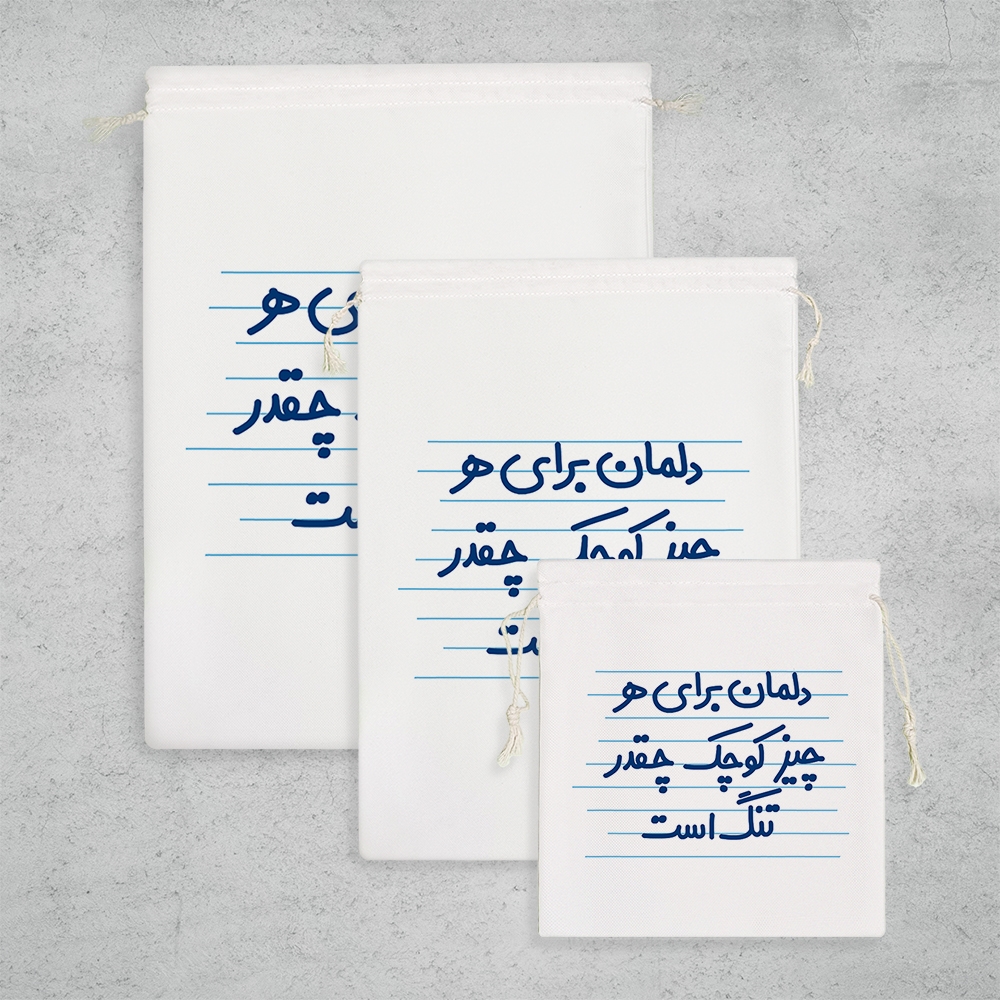 هر
چقدر
دلمان برای هر
چیز کوچک چقدر
دلمان برای هر
چیز کوچک چقدر
تنگ است